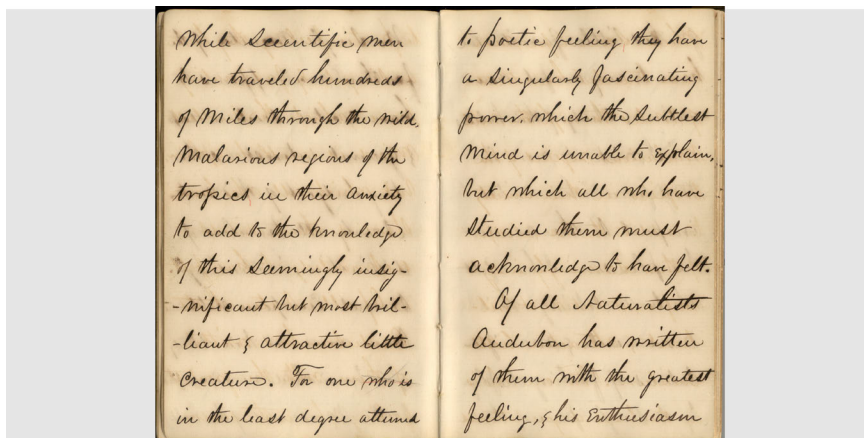 While Scientific men
have traveled hundreds
of Miles through the wild,
Malarious regions of the
tropics in their anxiety
to add to the knowledge
of this seemingly insig-
-nificant but most bril-
-liant & attractive little
Creature. For one who is
in the least degree attuned
to poetic feeling they have
a singularly fascinating
power, which the Subtlest
Mind is unable to explain,
but which all who have
Studied them must
acknowledge to have felt.
Of all Naturalists
Audubon has written
of them with the greatest
feeling, & his Enthusiasm